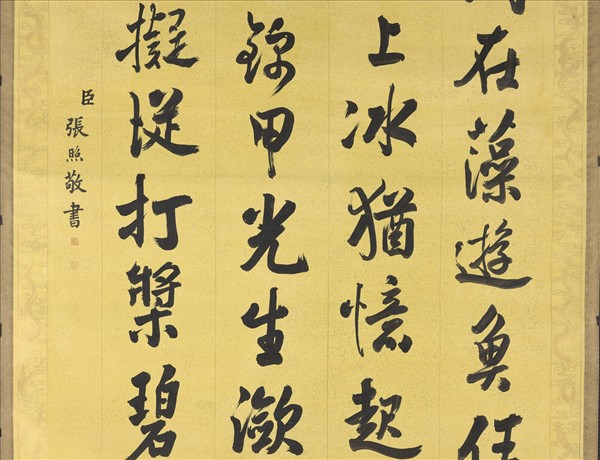 在藻遊魚
上冰猶憶起
錦甲光生瀲
擬從打槳碧
臣張照敬書